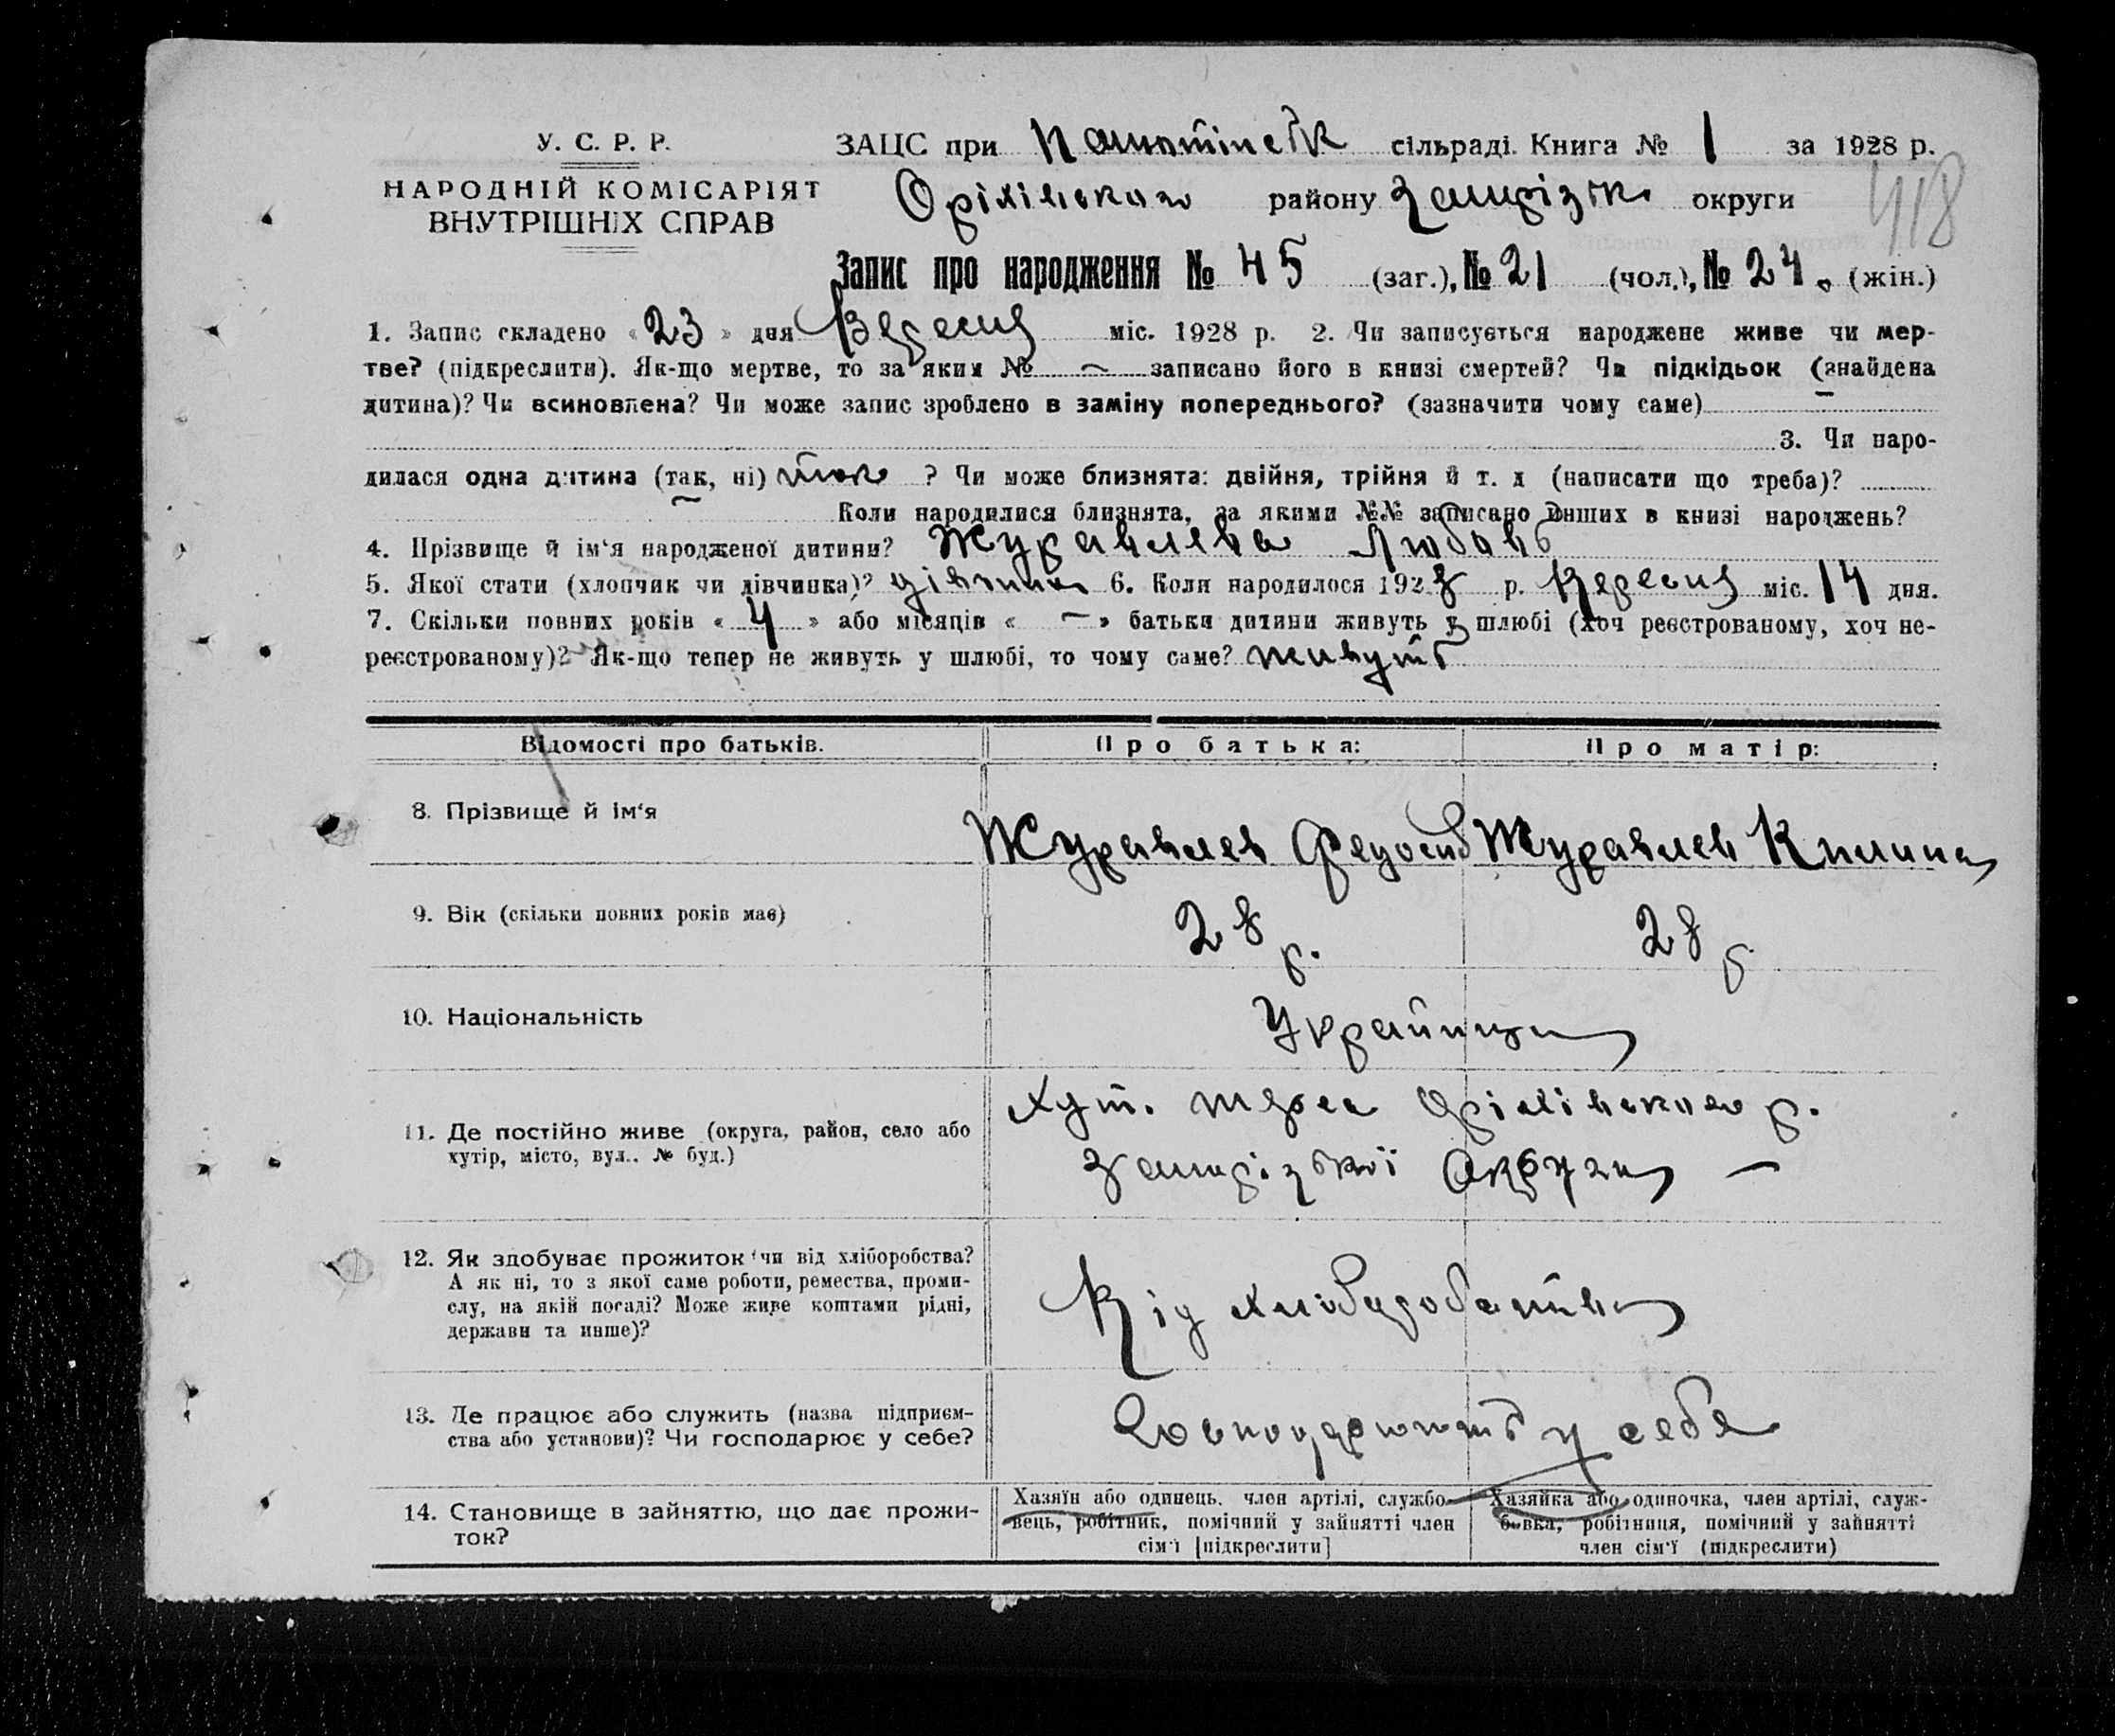 У. С. Р. Р.
НАРОДНІЙ КОМІСАРІЯТ
ВНУТРІШНІХ СПРАВ
ЗАЦС при сільраді. Книга № 1 за 1928 р.
Оріхівського району Запорізьк. округи
418
Запис про народження № 45 (заг.), № 21 (чол.), № 24. (жін.)
1. Запис складено « 23 » дня Вересня міс. 1928 р. 2. Чи записується народжене живе чи мер-
тве? (підкреслити). Як-що мертве, то за яким № — записано його в книзі смертей? Чи підкідьок (знайдена
дитина)? Чи всиновлена? Чи може запис зроблено в заміну попереднього? (зазначити чому саме) —
3. Чи наро-
дилася одна дитина (так, ні) так ? Чи може близнята: двійня, трійня й т. д (написати що треба)?
Коли народилися близнята, за якими №№ записано инших в книзі народжень?
4. Прізвище й ім‘я народженої дитини? Журавлева Любовь
5. Якої стати (хлопчик чи дівчинка)? дівчина 6. Коли народилося 1928 р. Вересня міс. 14 дня.
7. Скільки повних років « 4 » або місяців « — » батьки дитини живуть у шлюбі (хоч реєстрованому, хоч не-
реєстрованому)? Як-що тепер не живуть у шлюбі, то чому саме? живуть
Відомості про батьків.
Про батька:
Про матір:
8. Прізвище й ім‘я
Журавлев Федосій
Журавлев Килина
9. Вік (скільки повних років має)
28 р.
28 р.
10. Національність
Українци
11. Де постійно живе (округа, район, село або
хутір, місто, вул.. № буд.)
Хут. Оріхівського р.
Запорізької Округи —
12. Як здобуває прожиток (чи від хліборобства?
А як ні, то з якої саме роботи, ремества, проми-
слу, на якій посаді? Може живе коштами рідні,
держави та инше)?
Від
13. Де працює або служить (назва підприєм-
ства або установи)? Чи господарює у себе?
Господарюють у себе
14. Становище в зайняттю, що дає прожи-
ток?
Хазяїн або одинець. член артілі, службо-
вець, робітник, помічний у зайнятті член
сім‘ї [підкреслити]
Хазяйка або одиночка, член артілі, служ-
бовка, робітниця, помічний у зайнятті
член сім‘ї (підкреслити)